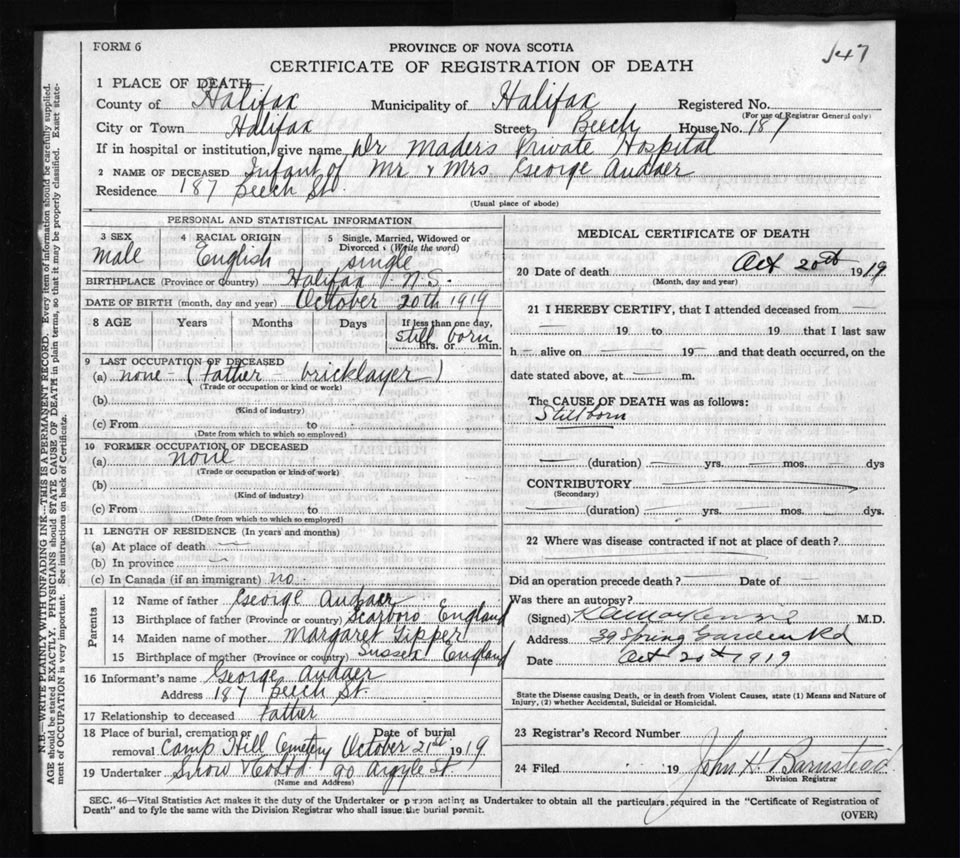 FORM 6
PROVINCE OF NOVA SCOTIA
CERTIFICATE OF REGISTRATION OF DEATH
147
1 PLACE OF DEATH
County of Halifax Municipality of Halifax Registered No.
(For use of Registrar General only)
City or Town Halifax Street Beech House No. 187
If in hospital or institution, give name Dr Maders Private Hospital
2 NAME OF DECEASED Infant of Mr & Mrs George Audaer
Residence 187 Beech St.
(Usual place of abode)
PERSONAL AND STATISTICAL INFORMATION
3 SEX 4 RACIAL ORIGIN 5 Single, Married, Widowed or Divorced (Write the word)
Male English single
BIRTHPLACE (Province or Country) Halifax N.S.
DATE OF BIRTH (month, day and year) October 20th 1919
8 AGE Years Months Days If less than one day,
still born
hrs. or min.
9 LAST OCCUPATION OF DECEASED
(a) none - (Father - bricklayer)
(Trade or occupation or kind of work)
(b)
(Kind of industry)
(c) From to
(Date from which to which so employed)
10 FORMER OCCUPATION OF DECEASED
(a) none
(Trade or occupation or kind of work)
(b)
(Kind of industry)
(c) From to
(Date from which to which so employed)
11 LENGTH OF RESIDENCE (In years and months)
(a) At place of death
(b) In province
(c) In Canada (if an immigrant) no.
Parents
12 Name of father George Audaer
13 Birthplace of father (Province or country) Scarboro England
14 Maiden name of mother Margaret Tipper
15 Birthplace of mother (Province or country) Sussex England
16 Informant's name George Audaer
Address 187 Beech St.
17 Relationship to deceased Father
18 Place of burial, cremation or removal Camp Hill Cemetery Date of burial October 21st 1919
19 Undertaker Snow & Co Ltd. 90 Argyle St.
(Name and Address)
MEDICAL CERTIFICATE OF DEATH
20 Date of death Oct 20th 1919
(Month, day and year)
21 I HEREBY CERTIFY, that I attended deceased from
19 to 19 that I last saw
h alive on 19 and that death occurred, on the
date stated above, at m.
The CAUSE OF DEATH was as follows:
Stillborn
(duration) yrs. mos. dys
CONTRIBUTORY
(Secondary)
(duration) yrs. mos. dys.
22 Where was disease contracted if not at place of death?
Did an operation precede death? Date of
Was there an autopsy?
(Signed) K A MacKenzie M.D.
Address 39 Spring Garden Rd
Date Oct 20th 1919
State the Disease causing Death, or in death from Violent Causes, state (1) Means and Nature of
Injury, (2) whether Accidental, Suicidal or Homicidal.
23 Registrar's Record Number
24 Filed 19 John H. Barnstead
Division Registrar
SEC. 46—Vital Statistics Act makes it the duty of the Undertaker or person acting as Undertaker to obtain all the particulars required in the "Certificate of Registration of
Death" and to fyle the same with the Division Registrar who shall issue the burial permit.
(OVER)
N.B.—WRITE PLAINLY WITH UNFADING INK—THIS IS A PERMANENT RECORD. Every item of information should be carefully supplied.
AGE should be stated EXACTLY. PHYSICIANS should STATE CAUSE OF DEATH in plain terms, so that it may be properly classified. Exact state-
ment of OCCUPATION is very important. See instructions on back of Certificate.